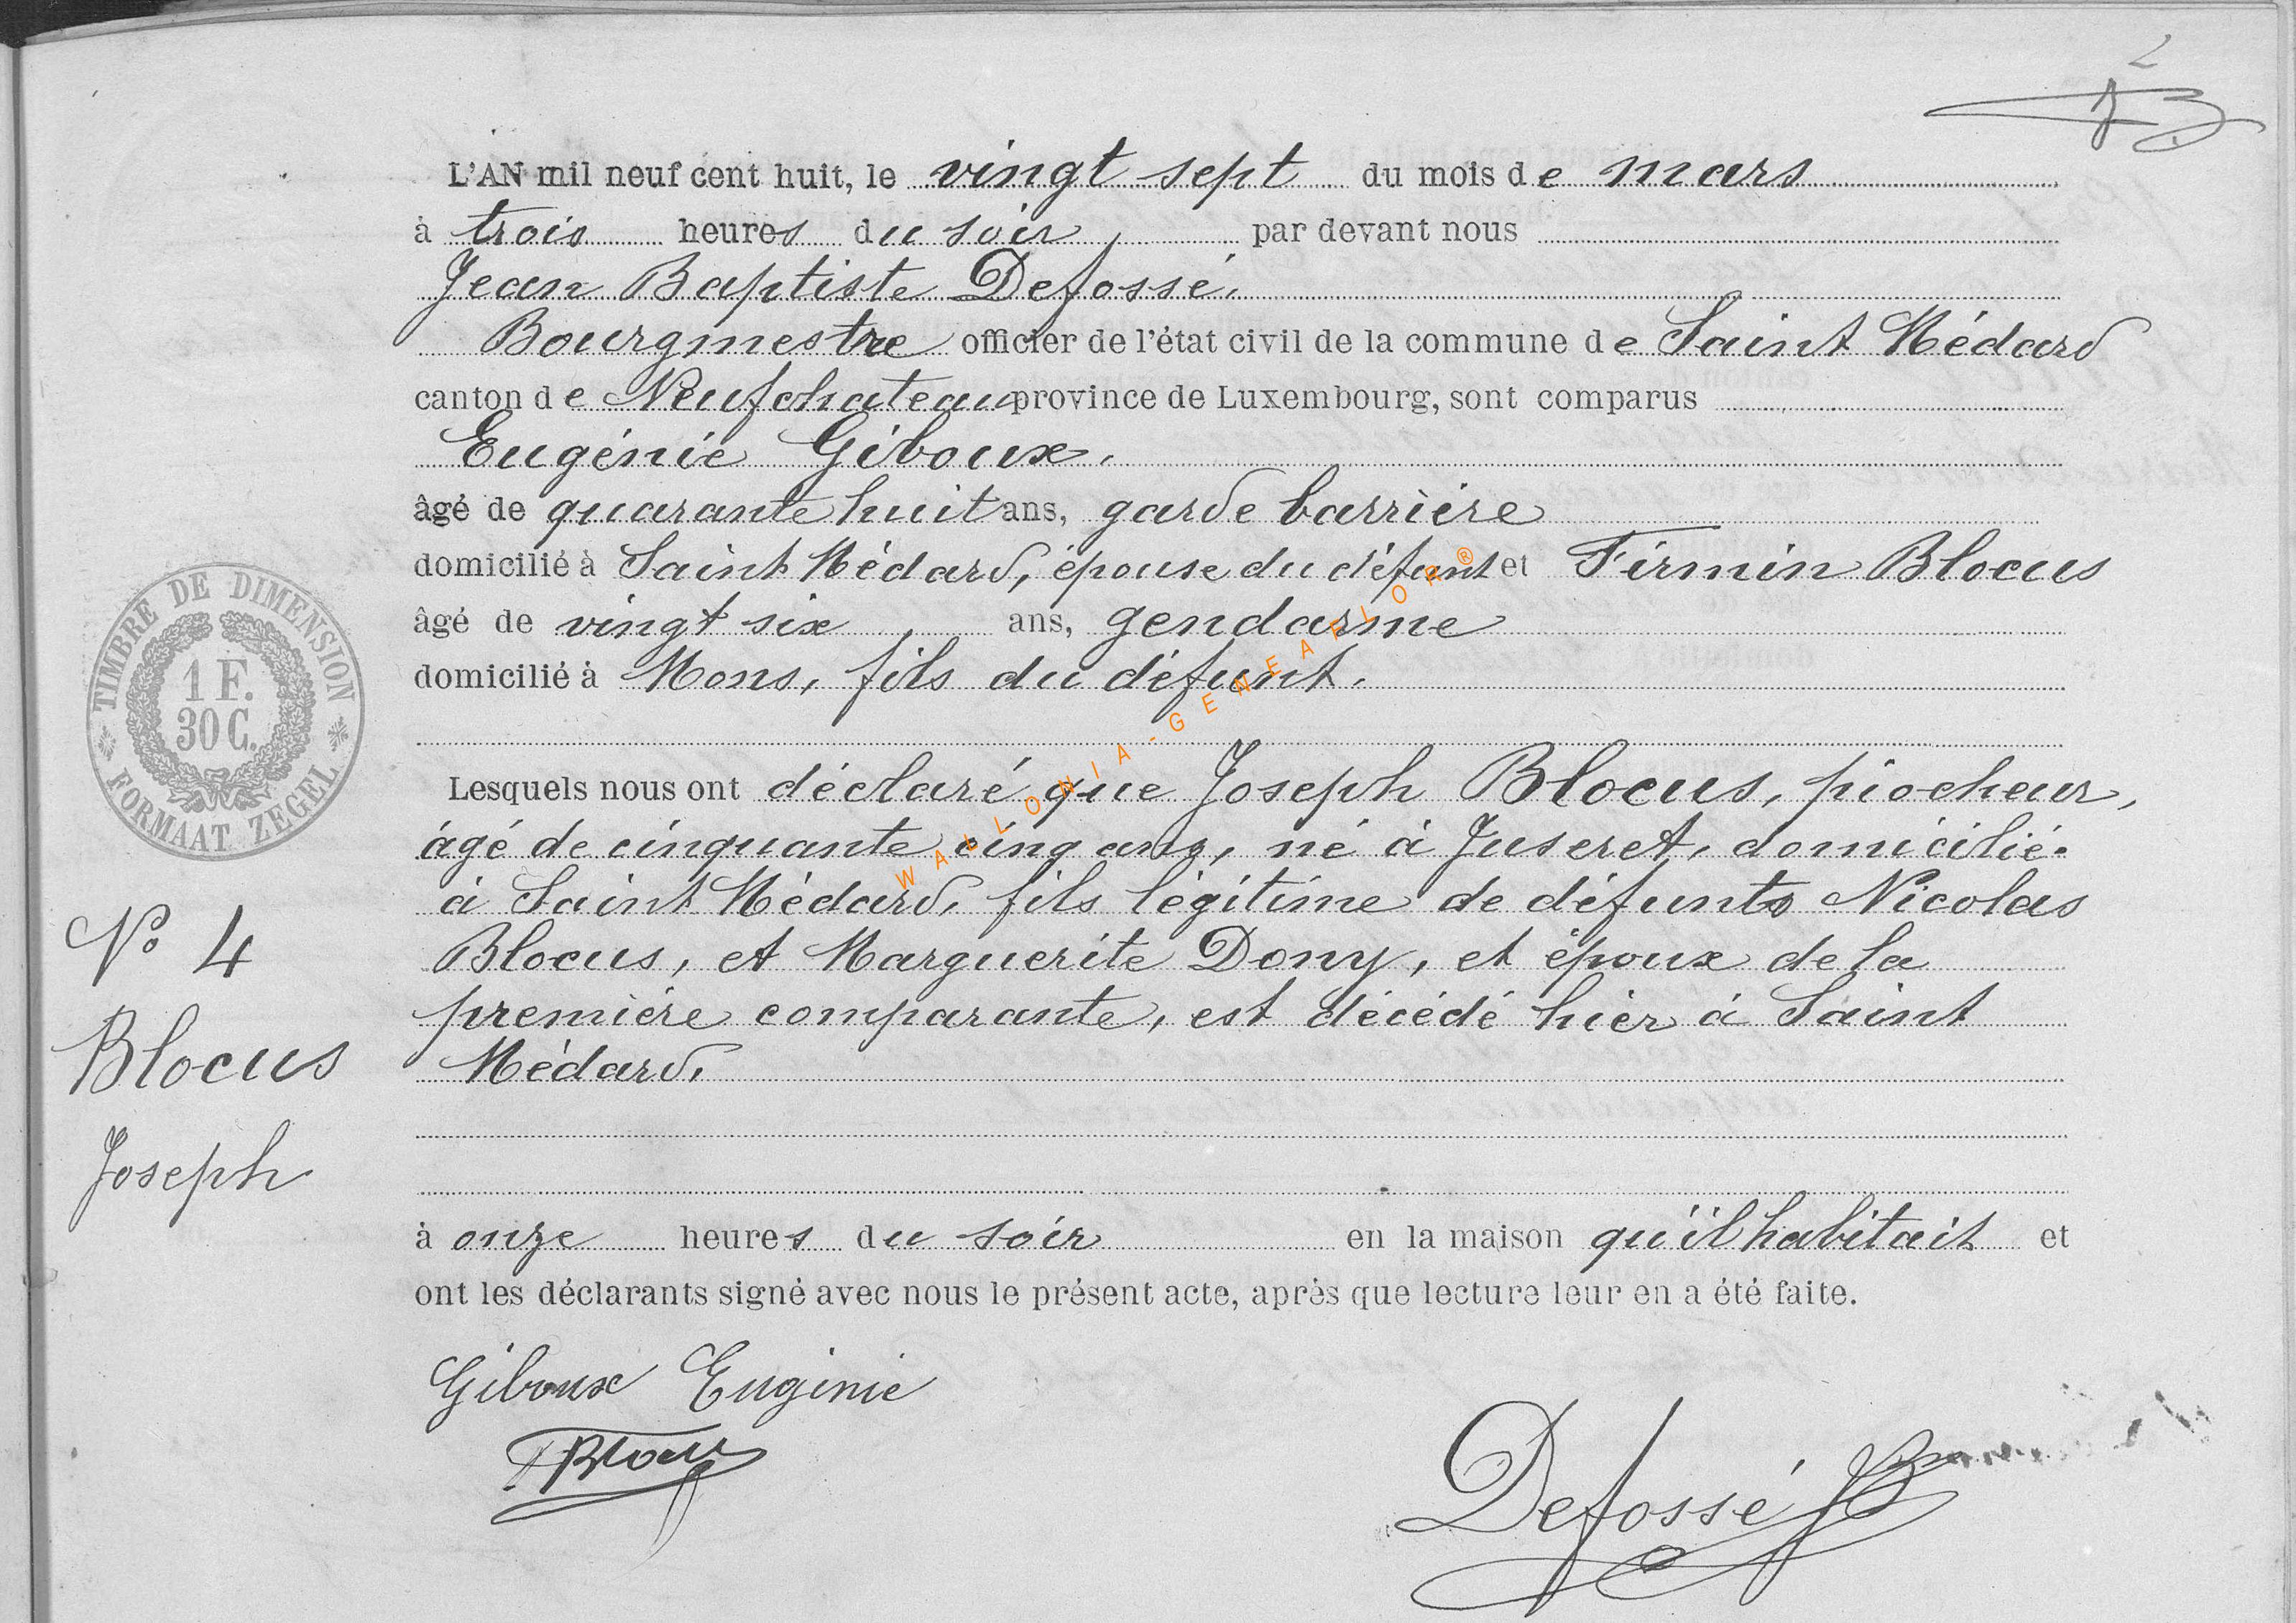 2
L'AN mil neuf cent huit, le vingt sept du mois de mars
à trois heures du soir, par devant nous
Jean Baptiste Defossé,
Bourgmestre officier de l'état civil de la commune de Saint Médard
canton de Neufchateau province de Luxembourg, sont comparus
Eugénie Giboux,
âgé de quarante huit ans, garde barrière
domicilié à Saint Médard, épouse du défunt et Firmin Blocus
âgé de vingt six, ans, gendarme
domicilié à Mons, fils du défunt.
Lesquels nous ont déclaré que Joseph Blocus, piocheur,
âgé de cinquante cinq ans, né à Juseret, domicilié
à Saint Médard, fils légitime de défunts Nicolas
Blocus, et Marguerite Dony, et époux de la
première comparante, est décédé hier à Saint
Médard,
à onze heures du soir en la maison qu'il habitait et
ont les déclarants signé avec nous le présent acte, après que lecture leur en a été faite.
Giboux Euginie
FBlocus
Defossé JB
TIMBRE DE DIMENSION
1 F.
30 C.
FORMAAT ZEGEL
No 4
Blocus
Joseph
WALLONIA-GENEAFLOR®